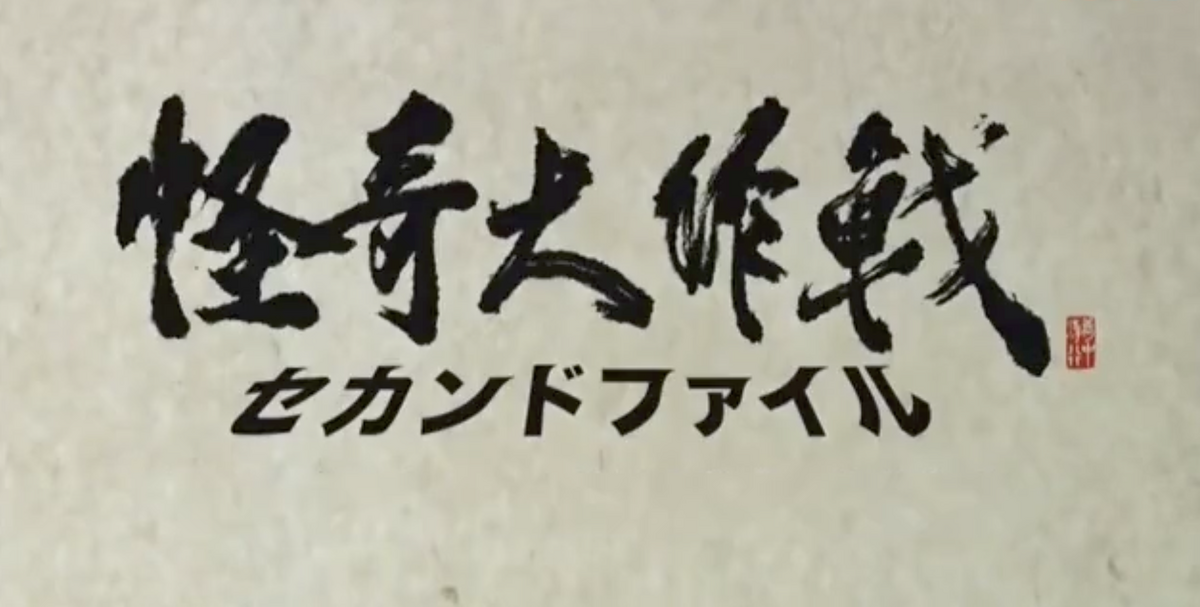 怪奇大作戦
セカンドファイル